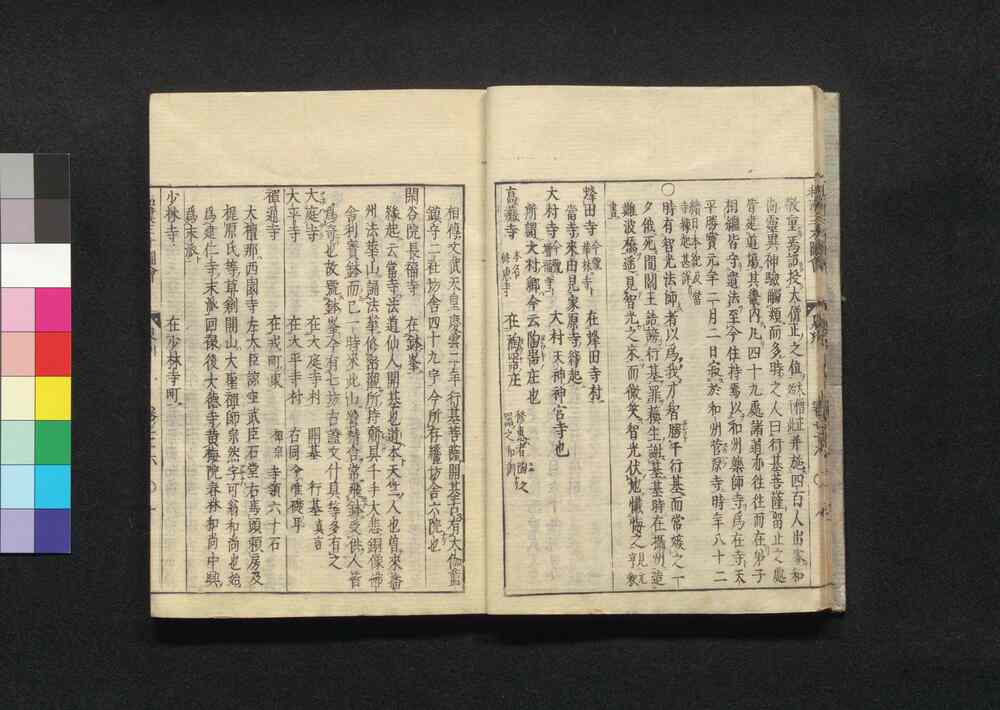 敬重焉詔授大僧正之位 大僧正始于此 并施四百人出家和
尚靈異神驗觸類而多時之人曰行基菩薩留止之處
皆建道場其畿內凡四十九處諸道亦往往而在弟子
相繼皆守遺法至今住持焉以和州藥師寺爲在寺天
平勝寶元年二月二日寂於和州菅原寺時年八十二
續日本紀及當
寺緣起甚詳
〇時有智光法師者以爲我才智勝于行基而常嫉之一
夕俄死間閻王詰謗行基罪獲生謝基基時在攝州造
難波橋遙見智光之來而微笑智光伏地懺悔之 見元亨釋
書
蜂田寺 今號華林寺 在蜂田寺村
當寺來由見家原寺緣起
大村寺 今號 大村天神神宮寺也
所謂大村鄉今云陶器庄也
高藏寺 本名修惠寺 在陶器庄 修惠者陶之
相傳文武天皇慶雲二年行基菩薩開基古有大伽藍
鎮守二社坊舍四十九宇今所存纔坊舍六院也
閑谷院長福寺 在鉢峯
緣起云當寺法道仙人開基也道本天竺人也曾來播
州法華山誦法華修密觀所持齋具千手大悲銅像佛
舍利寶鉢而已一時來此山 常飛鉢受供人皆
爲奇也故號鉢峯今有七坊古證文什具等多有之
大庭寺 在大庭寺村 開基 行基 真言
大平寺 在大平寺村 右同今唯礎耳
禪通寺 在戎町東 禪宗 寺領六十石
大檀那西園寺左大臣 武臣石堂右馬頭賴房及
楫原氏等草創開山大聖禪師宗然字可翁和尚也始
爲建仁寺末派回祿後大德寺黃梅院春林和尚中興
爲末派
少林寺 在少林寺町